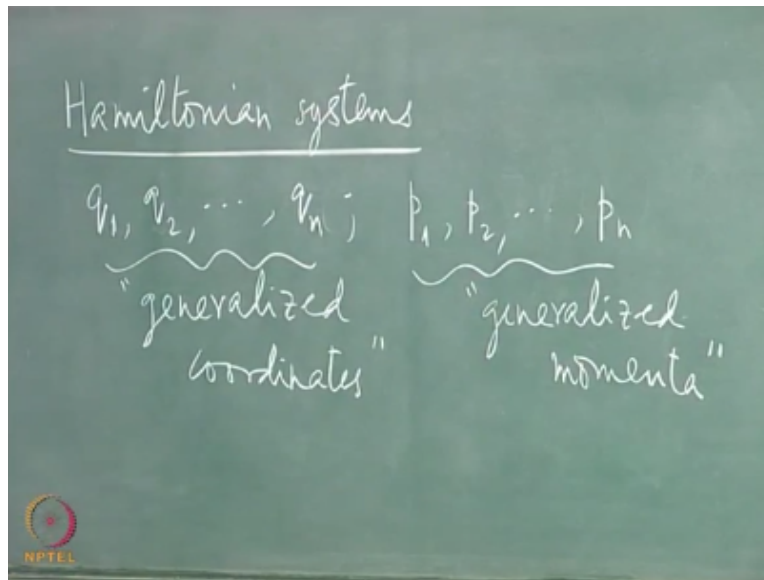 Hamiltonian systems
q₁, q₂, ..., qₙ ; p₁, p₂, ..., pₙ
"generalized coordinates"
"generalized momenta"
NPTEL